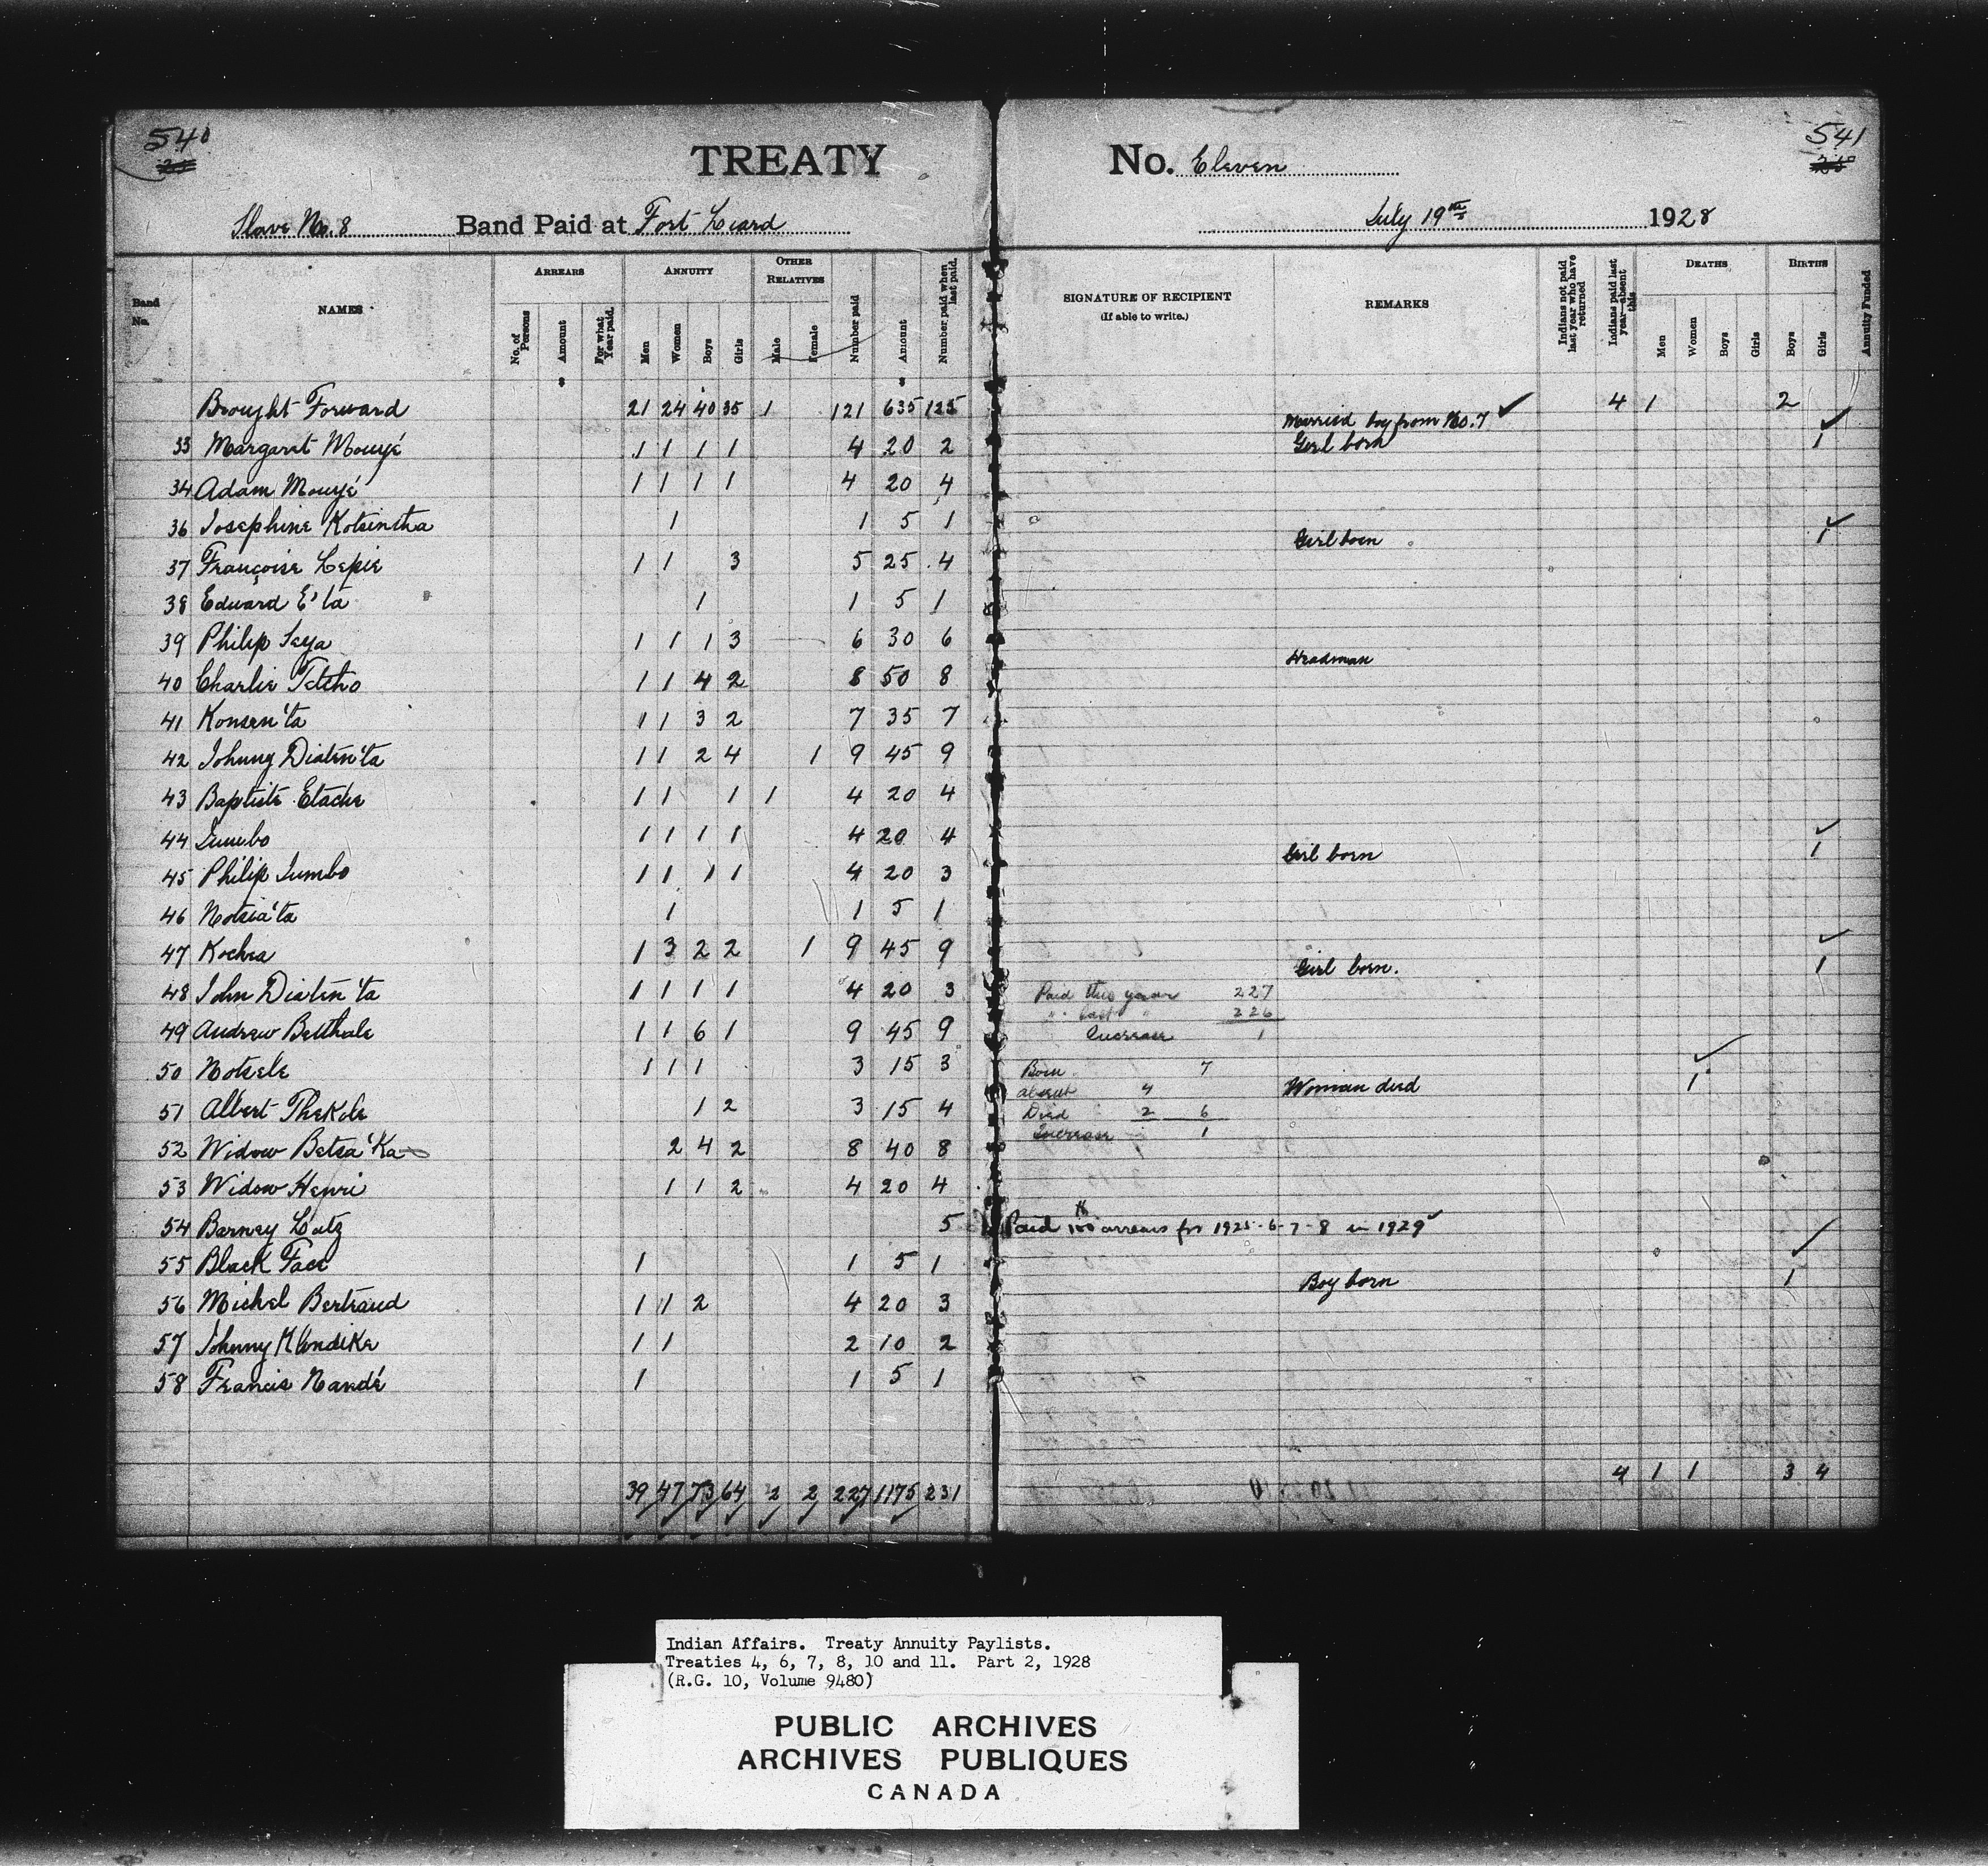 540
TREATY No. Eleven
541
Slave No. 8 Band Paid at Fort Liard July 19th 1928
Band No. NAMES ARREARS No. of Persons Amount For what Year paid. ANNUITY Men Women Boys Girls OTHER RELATIVES Male Female Number paid Amount Number paid when last paid. SIGNATURE OF RECIPIENT (If able to write.) REMARKS Indians not paid last year who have returned Indians paid last year—absent this DEATHS Men Women Boys Girls BIRTHS Boys Girls Annuity Funded
Brought Forward 21 24 40 35 1 121 635 125 4 1 2
Married boy from No. 7 ✓
33 Margaret Mouyé 1 1 1 1 4 20 2 Girl born 1 ✓
34 Adam Mouyé 1 1 1 1 4 20 4
36 Josephine Kotsintha 1 1 5 1
37 Françoise Lepie 1 1 3 5 25 4 Girl born 1 ✓
38 Edward E'ta 1 1 5 1
39 Philip Seya 1 1 1 3 6 30 6
40 Charlie Tetsho 1 1 4 2 8 50 8 Headman
41 Konsen'ta 1 1 3 2 7 35 7
42 Johnny Diaten'ta 1 1 2 4 1 9 45 9
43 Baptiste Etache 1 1 1 1 4 20 4
44 Jumbo 1 1 1 1 4 20 4
45 Philip Jumbo 1 1 1 1 4 20 3 Girl born 1 ✓
46 Notsia'ta 1 1 5 1
47 Kochea 1 3 2 2 1 9 45 9
48 John Diaten'ta 1 1 1 1 4 20 3 Girl born. 1 ✓
Paid this year 227
49 Andrew Betthale 1 1 6 1 9 45 9
" last " 226
Increase 1
50 Notsele 1 1 1 3 15 3
Born 7
51 Albert Thekole 1 2 3 15 4 Woman died 1 ✓
absent 4
Died 2 6
Increase 1
52 Widow Betsa'Ka 2 4 2 8 40 8
53 Widow Henri 1 1 2 4 20 4
54 Barney Lutz 5 Paid $100 arrears for 1925-6-7-8 in 1929
55 Black Face 1 1 5 1
56 Michel Bertrand 1 1 2 4 20 3 Boy born 1 ✓
57 Johnny Klondike 1 1 2 10 2
58 Francis Nandé 1 1 5 1
39 47 73 64 2 2 227 1175 231 4 1 1 3 4
Indian Affairs. Treaty Annuity Paylists.
Treaties 4, 6, 7, 8, 10 and 11. Part 2, 1928
(R.G. 10, Volume 9480)
PUBLIC ARCHIVES
ARCHIVES PUBLIQUES
CANADA